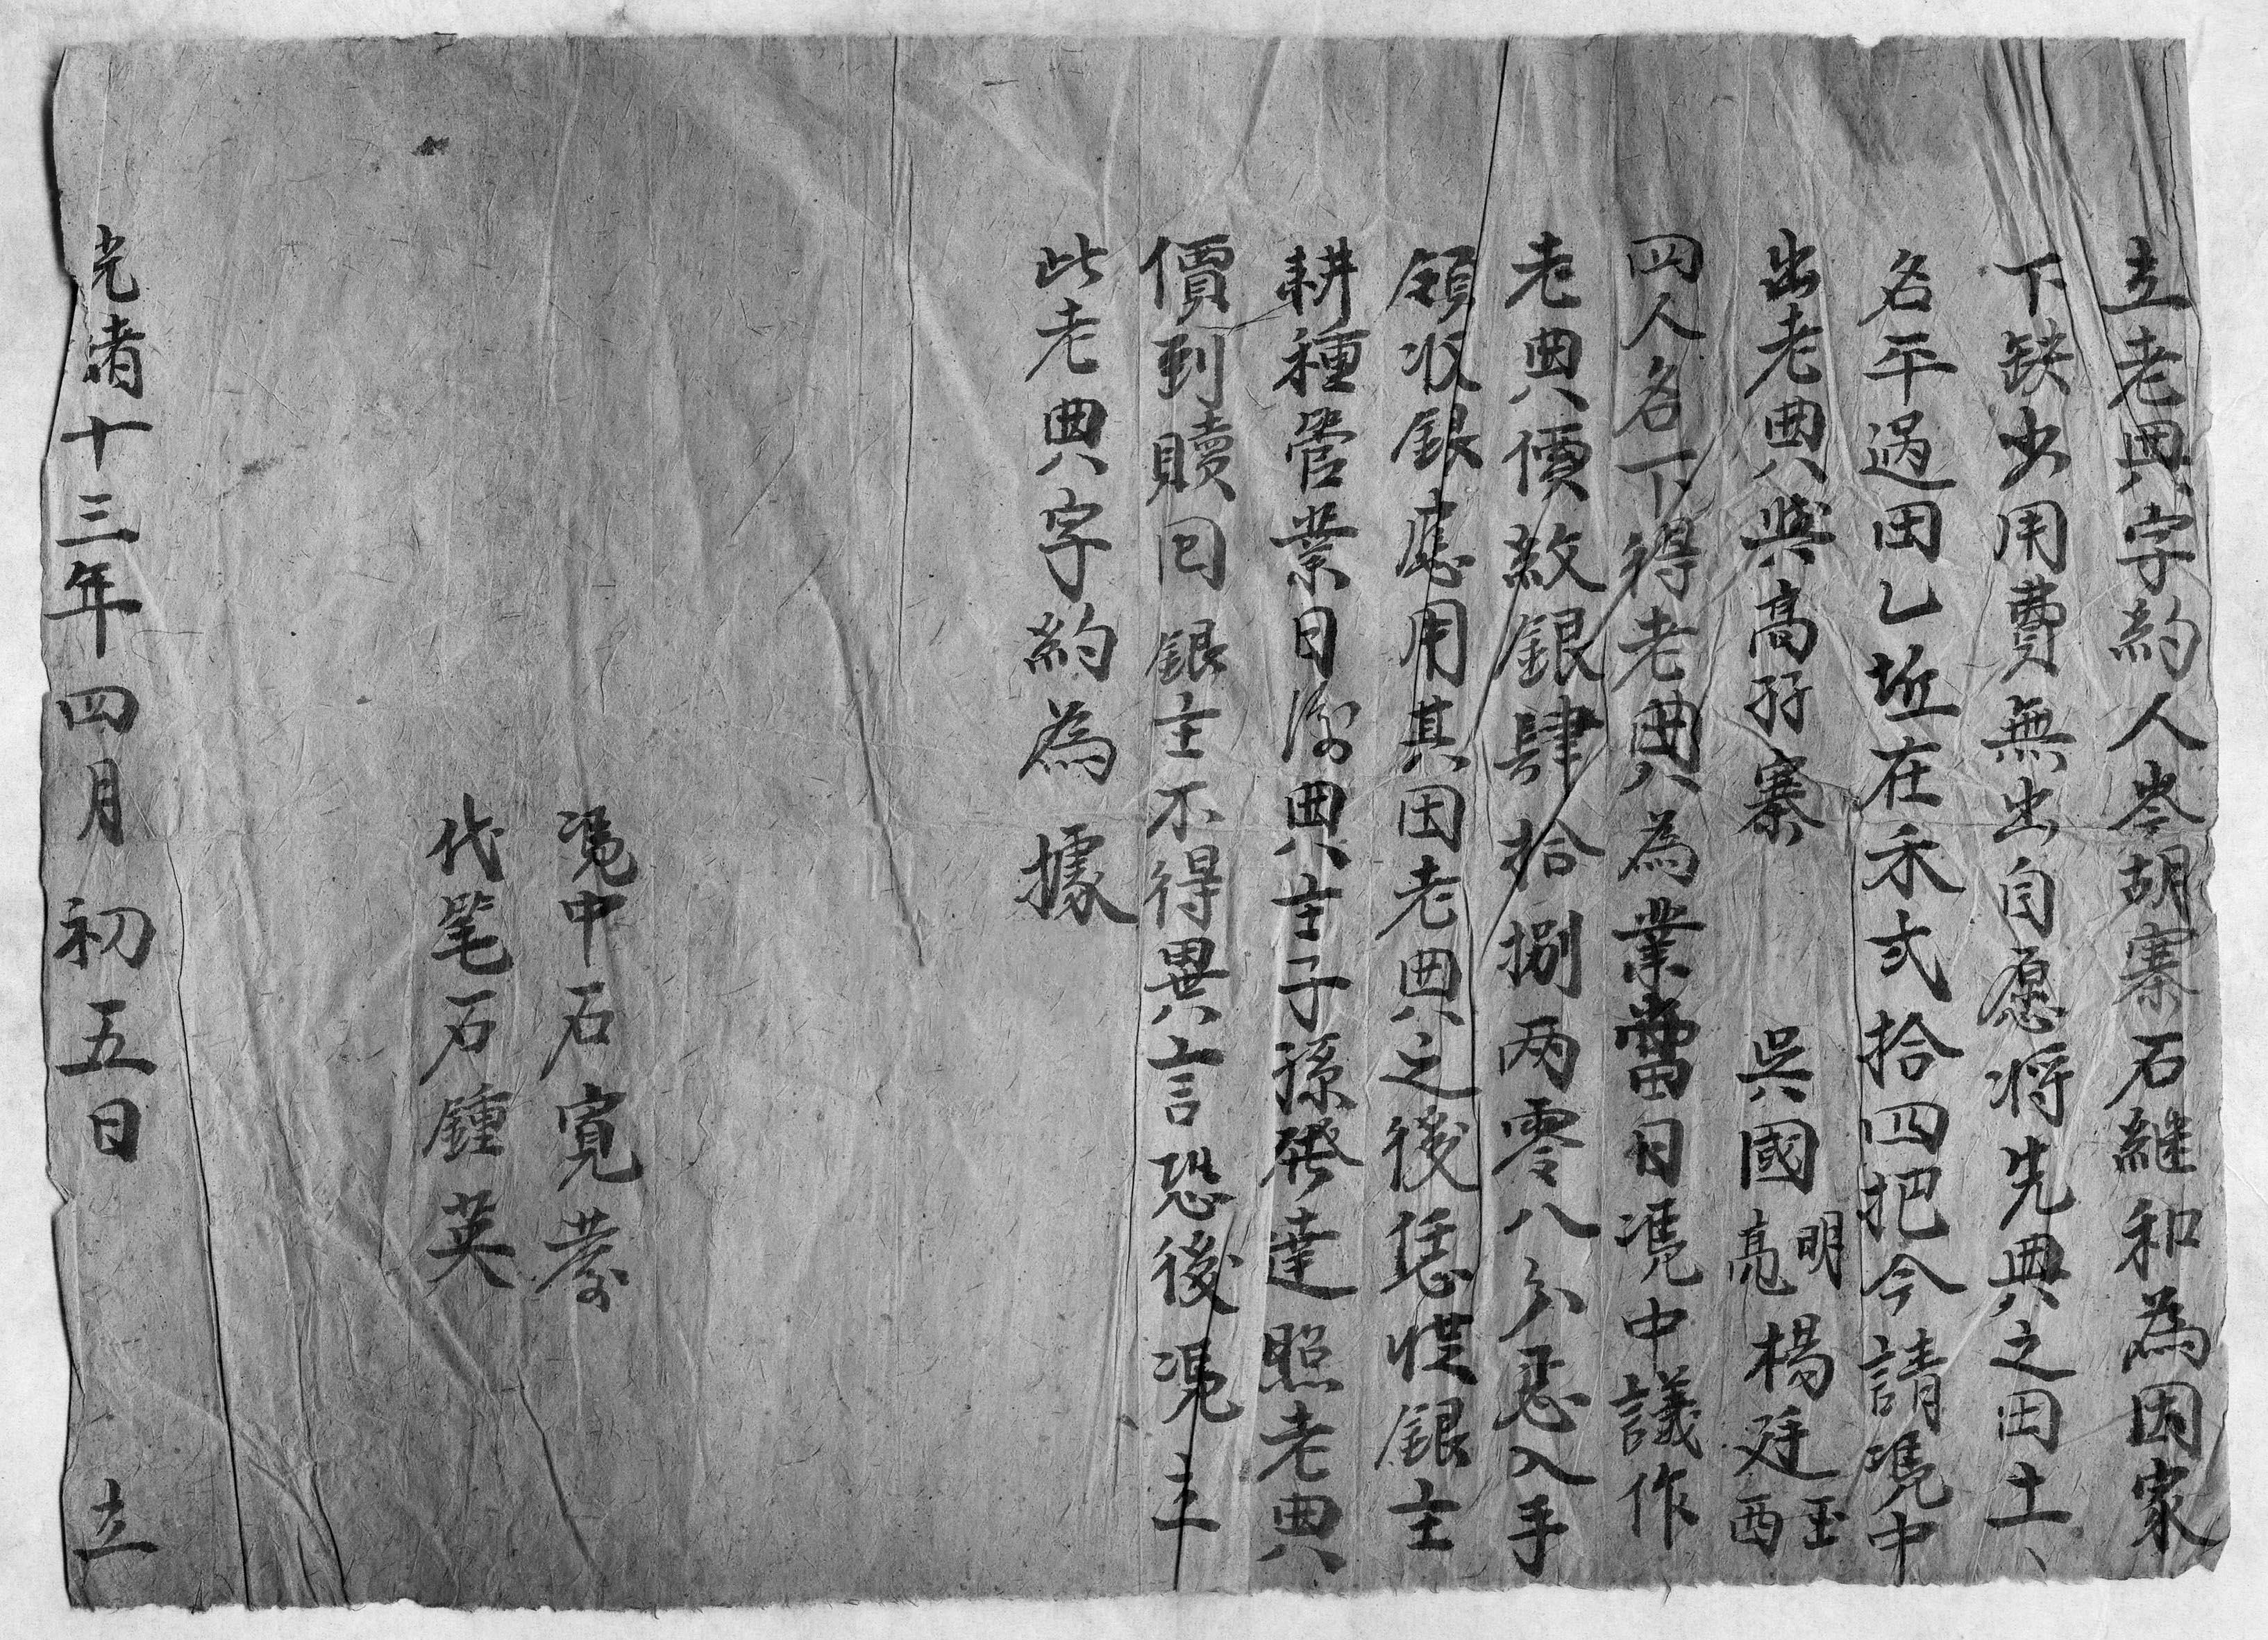 立老典字約人岑胡寨石継和為因家
下缺少用費無出自愿将先典之田土、
名平過田乚坵在禾弍拾四把今請凴中
出老典與高孖寨 吳國明亮楊廷玉酉
四人名下得老典為業當日凴中議作
老典價紋銀肆拾捌两零八分忍入手
領收銀應用其田老典之後恁憑銀主
耕種管業日後典主子孫發達照老典
價到贖回銀主不得異言恐後凴立
此老典字約為據
凴中石寬
代笔石鍾英
光绪十三年四月初五日 立